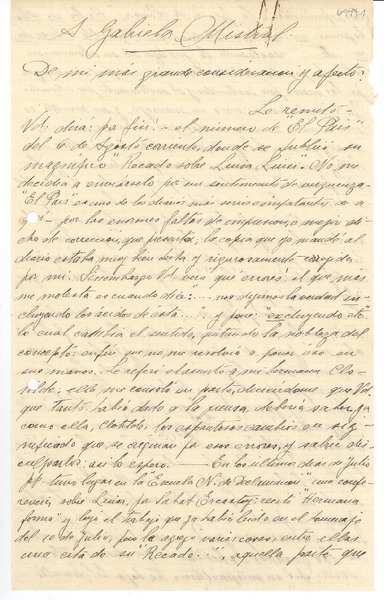 A Gabriela Mistral
De mi más grande consideración y afecto:
Le remito -
Vd. dirá: por fin! - el número de "El País"
del 6 de Agosto corriente, donde se publicó su
magnífico "Recado sobre Luisa Luisi". No me
decidía a enviárselo por un sentimiento de vergüenza.
"El País" es uno de los diarios más importantes de a-
quí - por las enormes faltas de impresión, o mejor di-
cho de corrección, que presenta; la copia que yo mandé al
diario estaba muy bien hecha y rigurosamente corregida
por mí. Sin embargo Vd. verá qué errores! el que más
me molesta es cuando dice: ... no dejemos la verdad in-
cluyendo los ácidos de ésta ... " y pone: "excluyendo etc."
lo cual cambia el sentido, quitando la nobleza del
concepto: en fin que no me resolvía a poner eso en
sus manos. Le referí el asunto a mi hermana Clo-
tilde: ella me consoló en parte, diciéndome que Vd.
que tanto había dado a la prensa, debería saber ya
como ella, Clotilde, los espantosos cambios en sig-
nificado que se originan por esos errores, y sabría dis-
culparlos: así lo espero. — En los últimos días de Julio
tuvo lugar en la Escuela N. de Declamación, una confe-
rencia sobre Luisa, por Sabat Ercasty; recité "Hermana
forma" y leyó el trabajo que ya había leído en el homenaje
del 10 de Julio, pero le agregó varias cosas, entre ellas
una cita de su "Recado...", aquella parte que